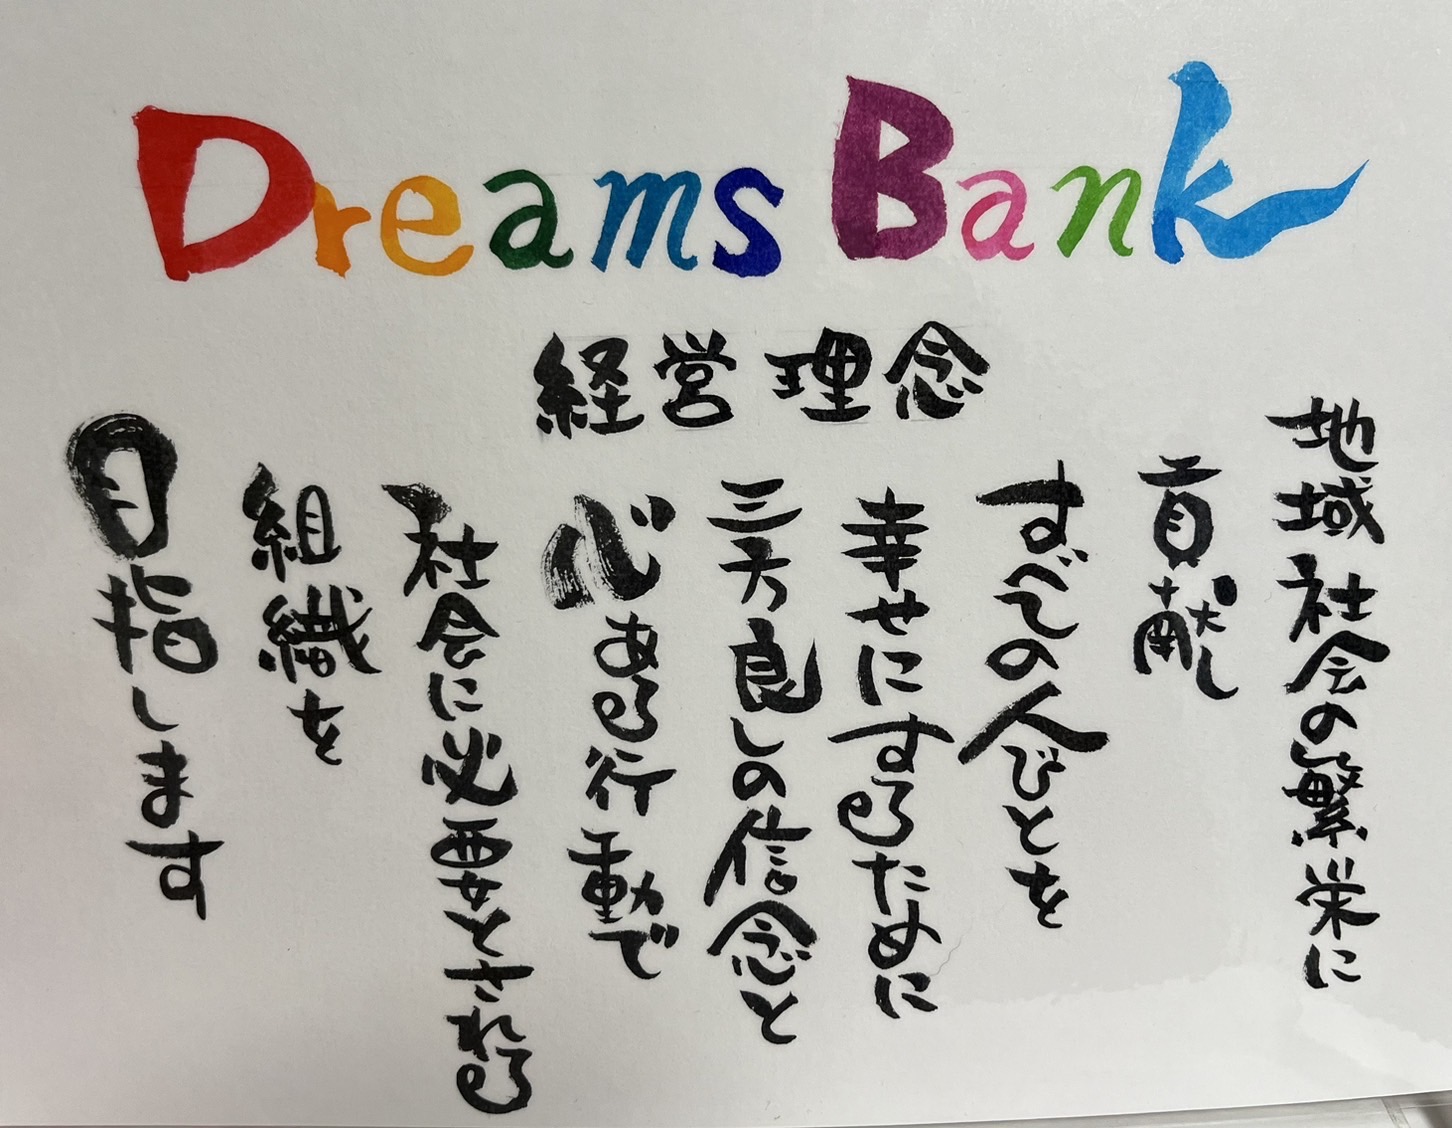 Dreams Bank
経営理念
地域社会の繁栄に
貢献し
すべての人びとを
幸せにするために
三方良しの信念と
心ある行動で
社会に必要とされる
組織を
目指します